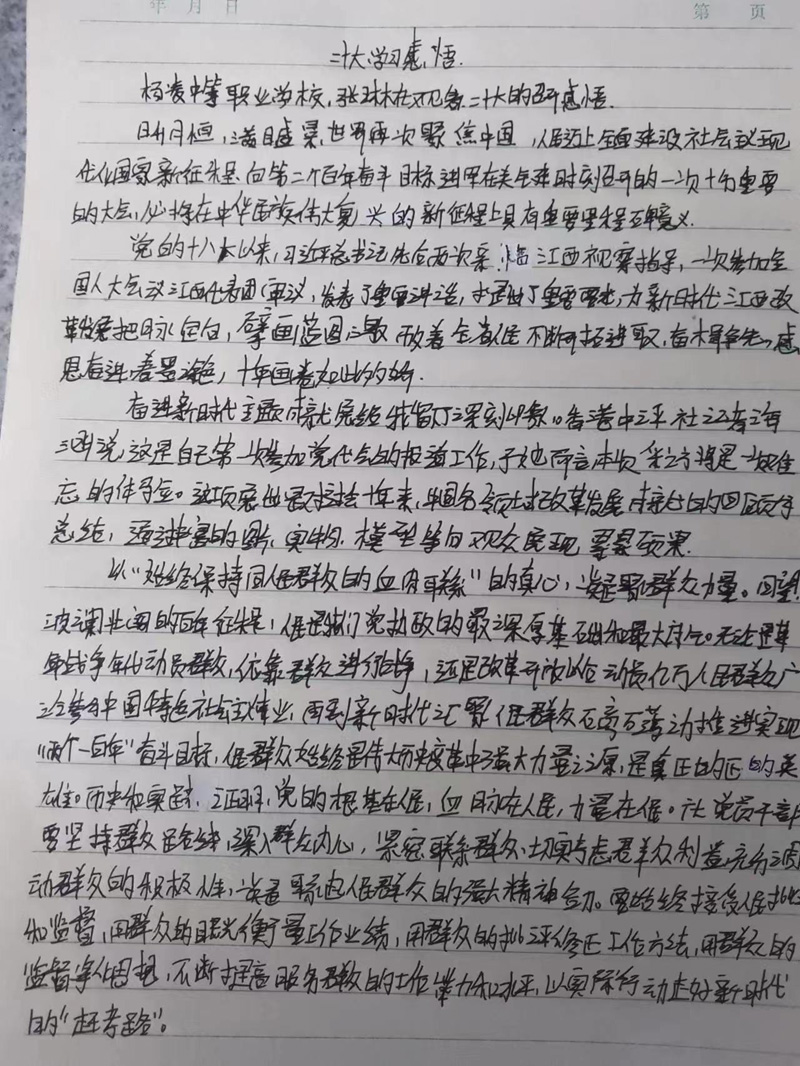 年 月 日 第 页
二十大学习感悟.
杨凌中等职业学校,张林在观看二十大的召开感悟.
日升月恒,满目盛景,世界再次聚焦中国,人民迈上全面建设社会主义现
代化国家新征程向第二个百年奋斗目标进军在关键时刻召开的一次十分重要
的大会,必将在中华民族伟大复兴的新征程上具有重要里程碑意义.
党的十八大以来,习近平总书记先后两次亲临江西视察指导,一次参加全
国人大会议江西代表团审议,发表了重要讲话,提出了重要要求,为新时代江西改
革发展把脉定向,擘画蓝图,激励着全省人民不断开拓进取,奋楫争先,感
恩奋进,着墨绘色,十年画卷如此的好.
奋进新时代主题成就展给我留下深刻印象。香港中评社记者海
涵说,这是自己第一次参加党代会的报道工作,于她而言本次采访将是一次难
忘的体验。这项展览对十年来,中国各领域改革发展成就的回顾与
总结,通过丰富的图片,实物,模型等向观众展现,累累硕果.
以“始终保持同人民群众的血肉联系”的真心,凝聚群众力量。回望
波澜壮阔的百年征程,人民是我们党执政的最深厚基础和最大底气。无论是革
命战争年代动员群众,依靠群众进行战争,还是改革开放以后动员亿万人民群众广
泛参与中国特色社会主义事业,再到新时代汇聚人民群众磅礴之力推进实现
“两个一百年”奋斗目标,人民群众始终是伟大历史变革中最大力量之源,是真正的的英
雄。历史和实践,证明,党的根基在人民,血脉在人民,力量在人民。广大党员干部
要坚持群众路线,深入群众内心,紧密联系群众,切实考虑群众利益,充分调
动群众的积极性,凝聚起人民群众的强大精神合力。要始终接受人民批评
和监督,用群众的眼光衡量工作业绩,用群众的批评修正工作方法,用群众的
监督净化思想,不断提高服务群众的工作能力和水平,以实际行动走好新时代
的“赶考路”。